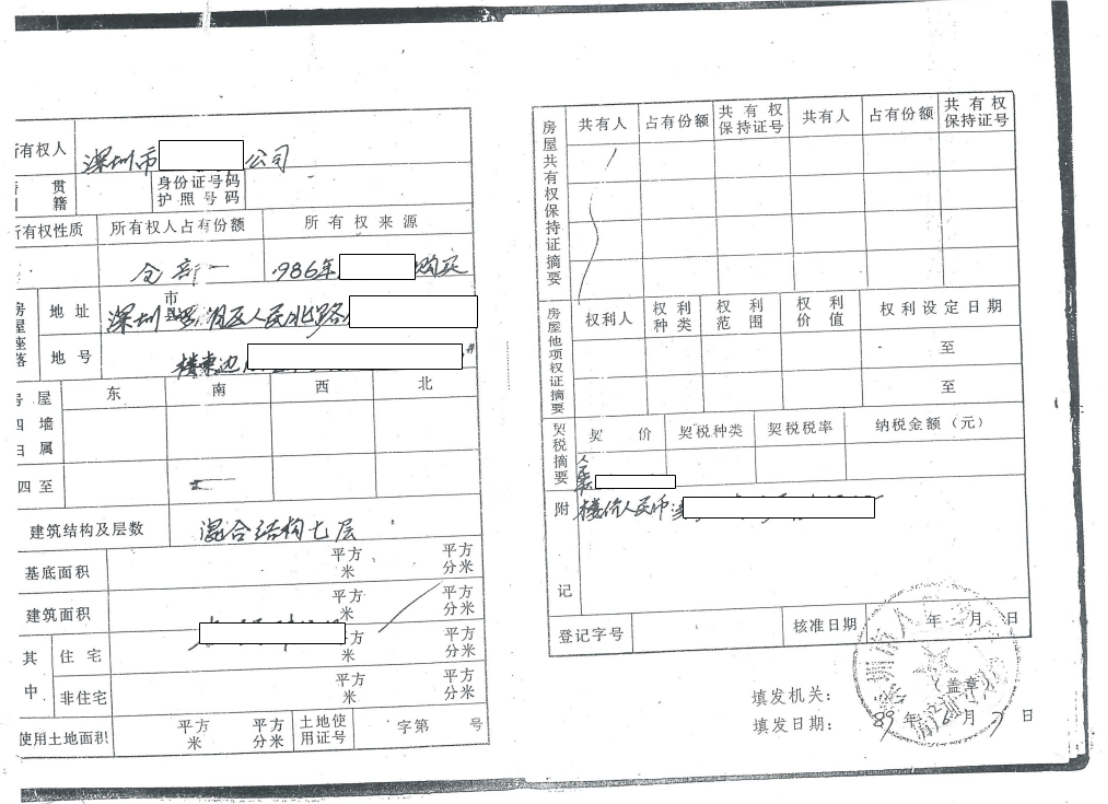 所有权人 深圳市 公司
籍贯 身份证号码 护照号码
所有权性质 所有权人占有份额 所有权来源
全部 1986年 购买
房屋座落 地址 市 县 深圳 罗湖区人民北路
地号 楼东边
房屋四墙归属 东 南 西 北
四至
建筑结构及层数 混合结构七层
基底面积 平方米 平方分米
建筑面积 平方米 平方分米
其中 住宅 平方米 平方分米
非住宅 平方米 平方分米
使用土地面积 平方米 平方分米 土地使用证号 字第 号
房屋共有权保持证摘要 共有人 占有份额 共有权保持证号 共有人 占有份额 共有权保持证号
房屋他项权证摘要 权利人 权利种类 权利范围 权利价值 权利设定日期
至
至
契税摘要 契价 契税种类 契税税率 纳税金额(元)
人民币
附记 楼价人民币
登记字号 核准日期 年 月 日
填发机关: (盖章)
填发日期: 89年6月7日
深圳市人